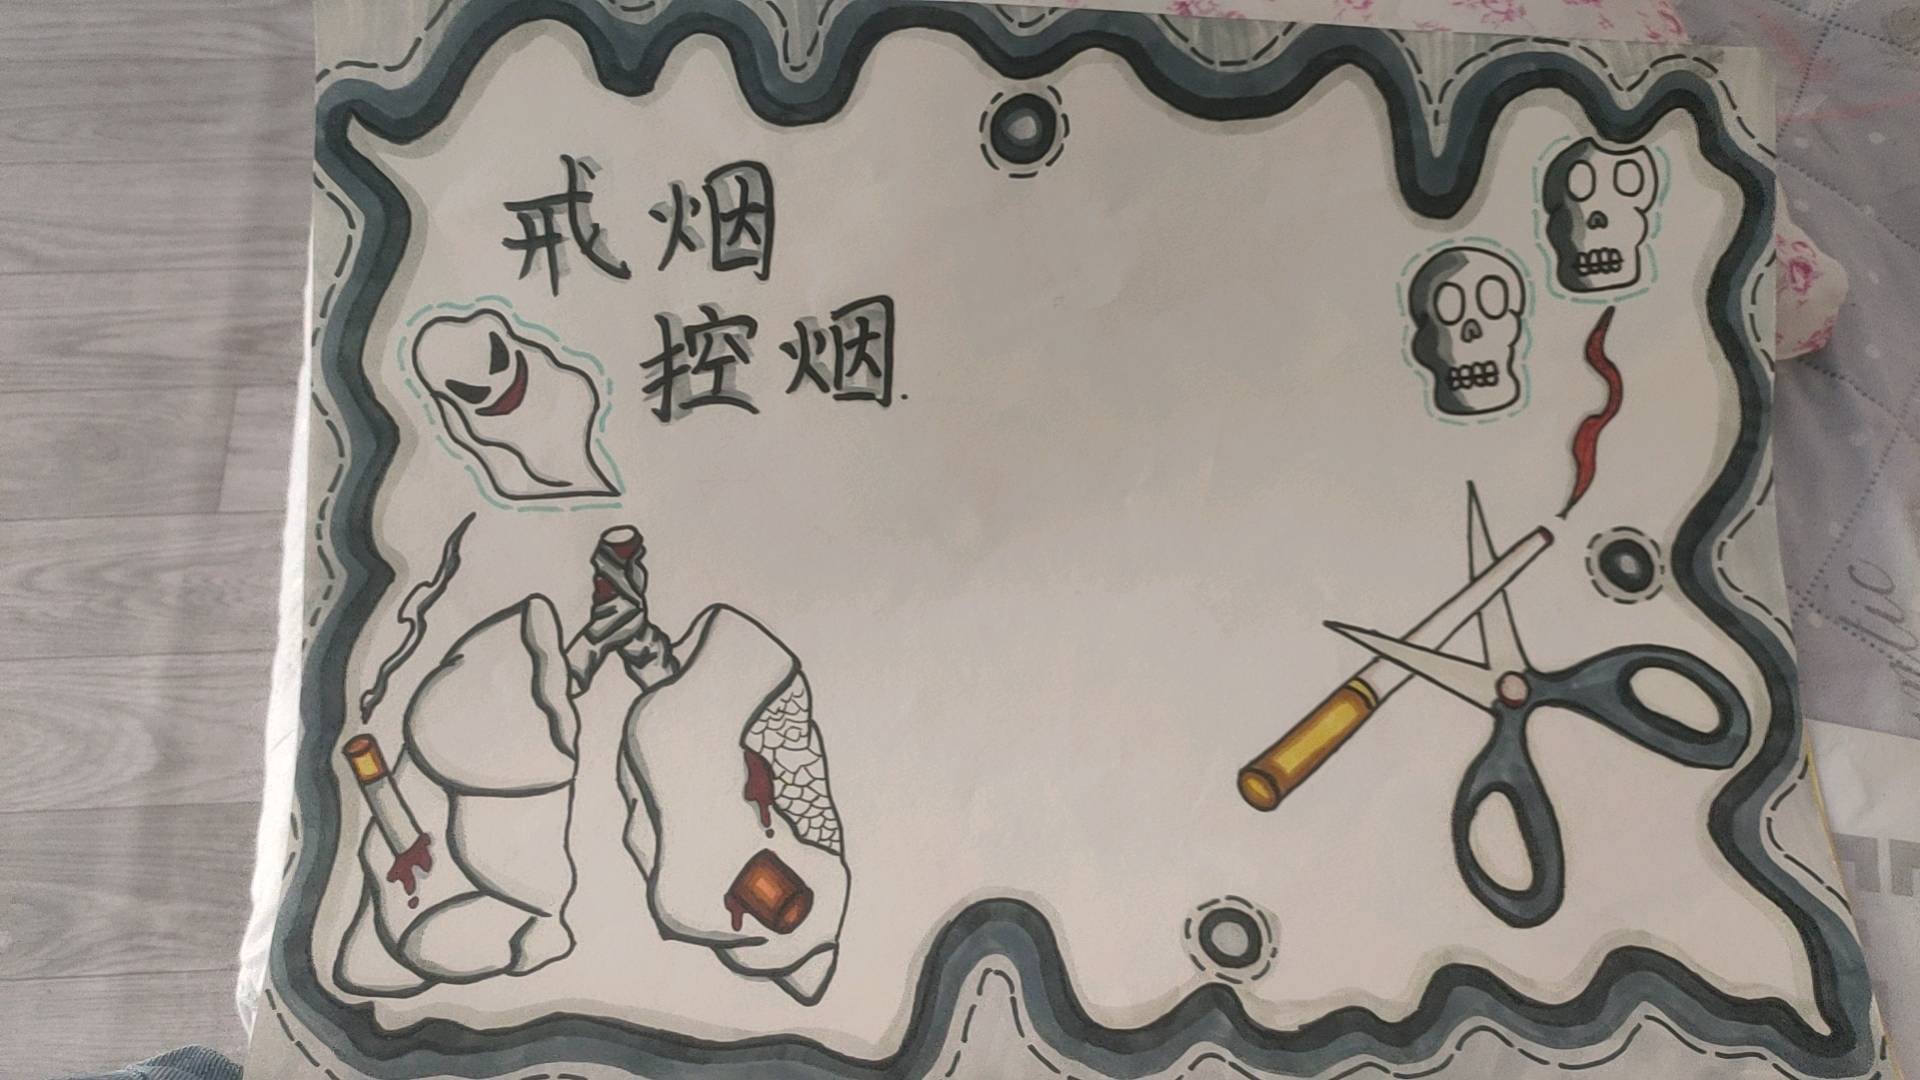 戒烟
控烟.